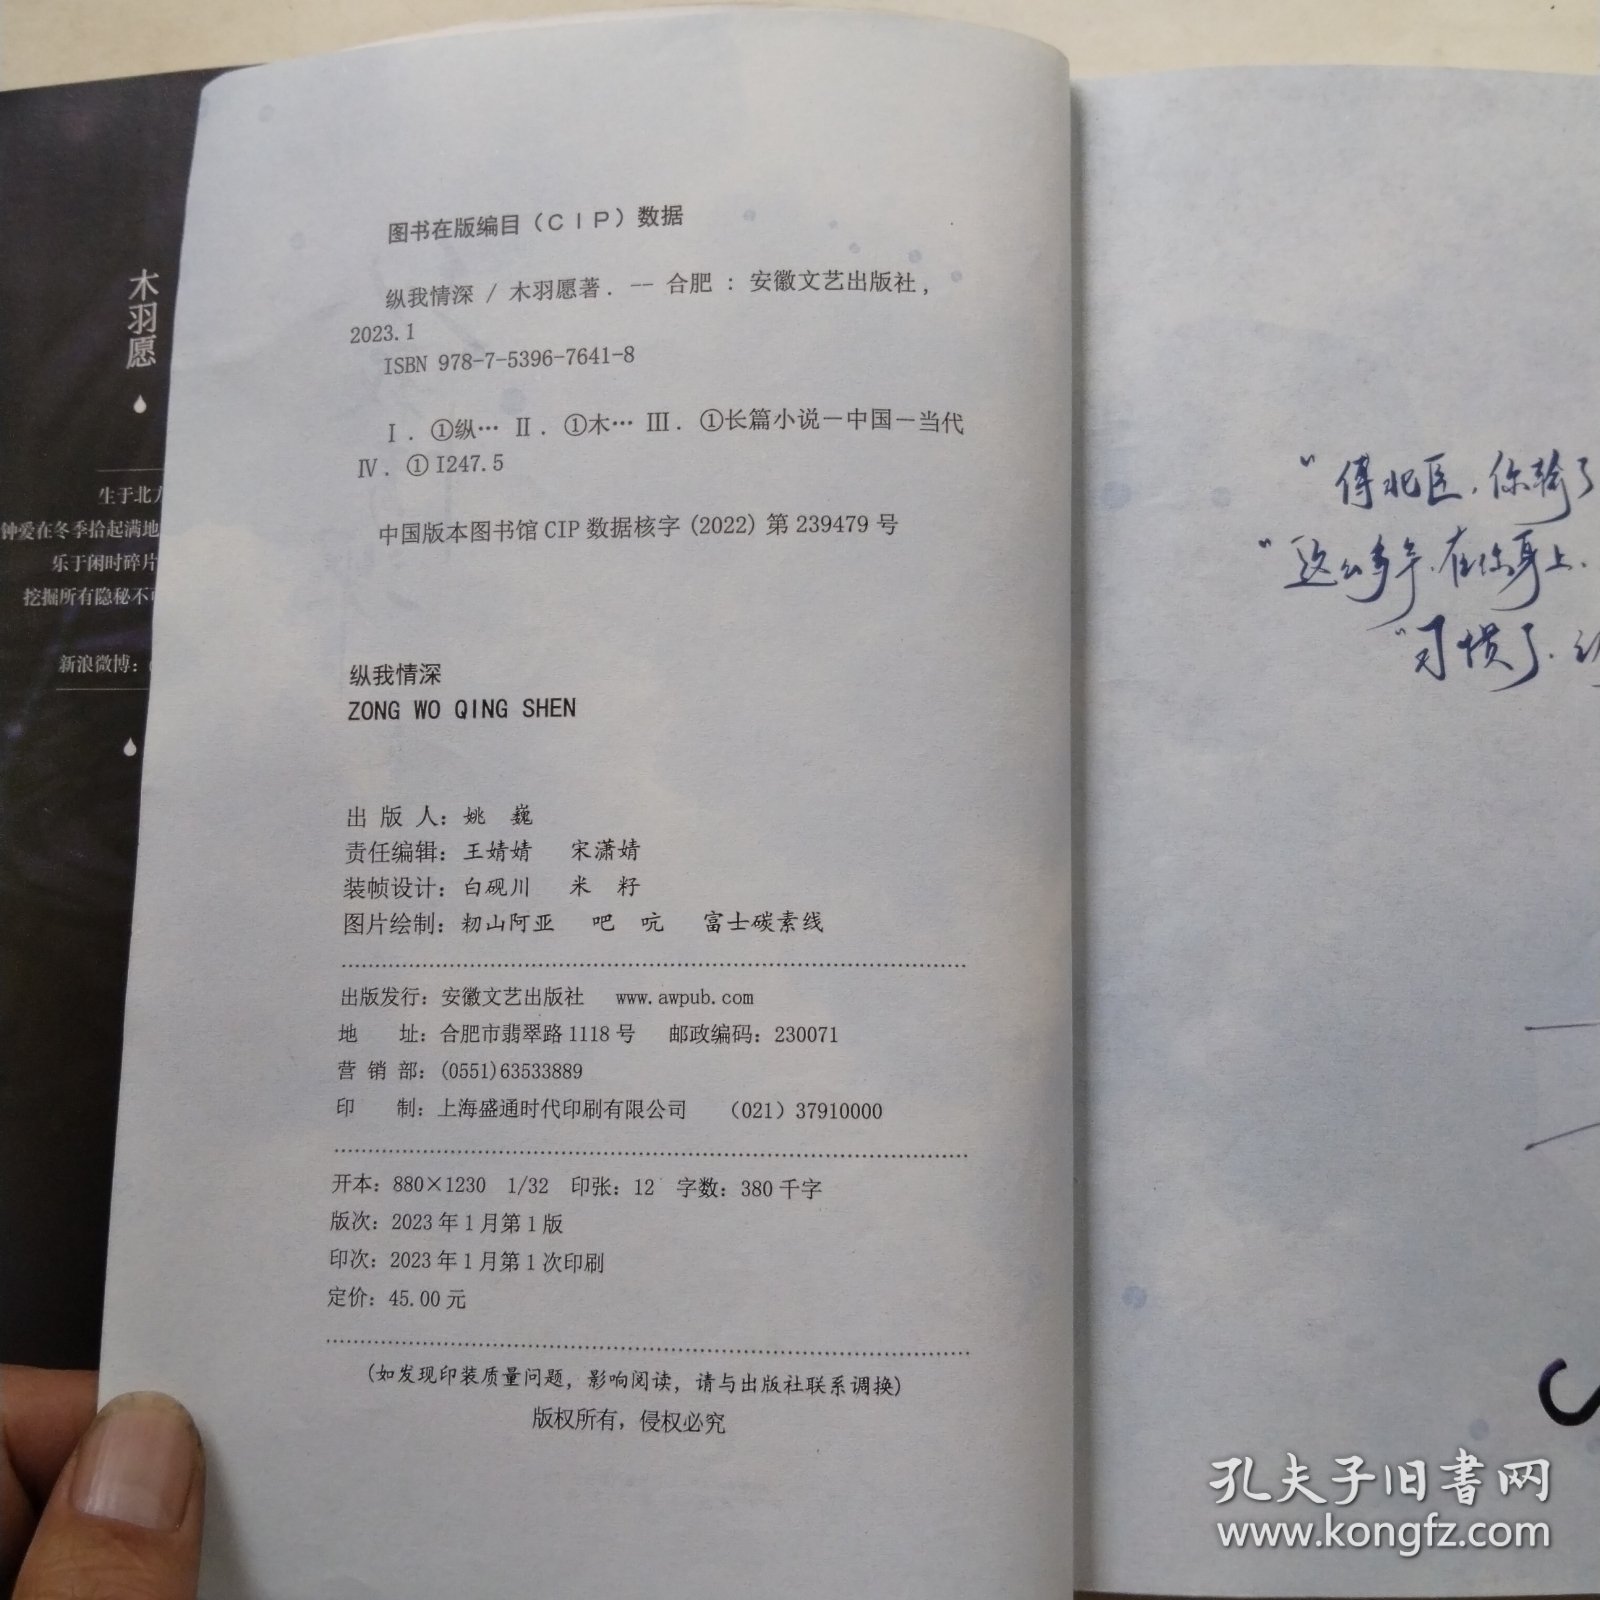 木羽愿
生于北方
钟爱在冬季拾起满地
乐于闲时碎片
挖掘所有隐秘不可
新浪微博：
图书在版编目（CIP）数据
纵我情深 / 木羽愿著. -- 合肥 : 安徽文艺出版社,
2023.1
ISBN 978-7-5396-7641-8
Ⅰ. ①纵… Ⅱ. ①木… Ⅲ. ①长篇小说－中国－当代
Ⅳ. ①I247.5
中国版本图书馆 CIP 数据核字 (2022) 第 239479 号
纵我情深
ZONG WO QING SHEN
出 版 人：姚 巍
责任编辑：王婧婧 宋潇婧
装帧设计：白砚川 米 籽
图片绘制：籾山阿亚 吧 吭 富士碳素线
出版发行：安徽文艺出版社 www.awpub.com
地 址：合肥市翡翠路 1118 号 邮政编码：230071
营 销 部：(0551)63533889
印 制：上海盛通时代印刷有限公司 （021）37910000
开本：880×1230 1/32 印张：12 字数：380 千字
版次：2023 年 1 月第 1 版
印次：2023 年 1 月第 1 次印刷
定价：45.00 元
(如发现印装质量问题，影响阅读，请与出版社联系调换)
版权所有，侵权必究
“傅北臣，你输了
“这么多年，在你身上，
“习惯了，
孔夫子旧书网
www.kongfz.com